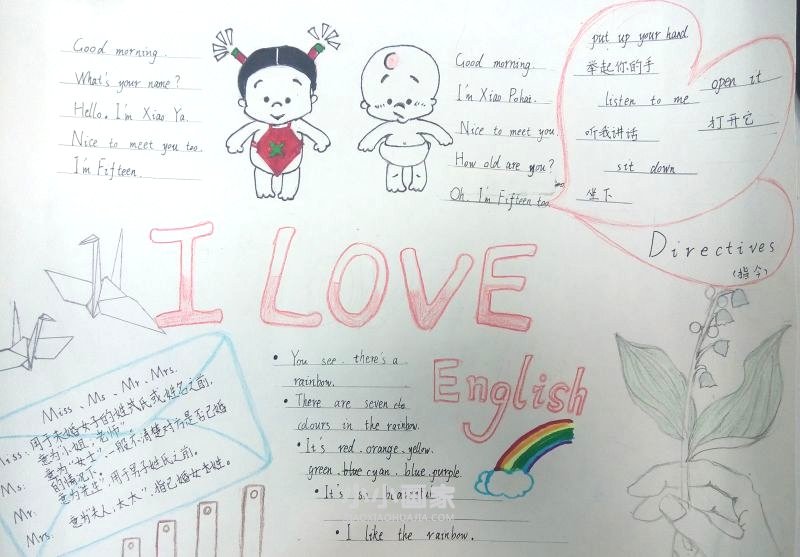 Good morning.
What's your name?
Hello. I'm Xiao Ya.
Nice to meet you too.
I'm Fifteen.
Good morning.
I'm Xiao Pohai.
Nice to meet you.
How old are you?
Oh. I'm Fifteen too.
put up your hand
举起你的手
listen to me
听我讲话
sit down
坐下
open it
打开它
Directives
(指令)
I LOVE
English
Miss、Ms、Mr、Mrs.
Miss: 用于未婚女子的姓式氏或姓名之前.
意为"小姐、老师".
Ms: 意为"女士",一般不清楚对方是否已婚
的情况下.
Mr: 意为"先生",用于男子姓氏之前。
Mrs: 意为"夫人、太太",指已婚女性。
• You see. there's a
rainbow.
• There are seven clo
colours in the rainbow.
• It's red. orange. yellow.
green. blue cyan. blue. purple.
• It's so
• I like the rainbow.
小小画家
XIAOXIAOHUAJIA.COM